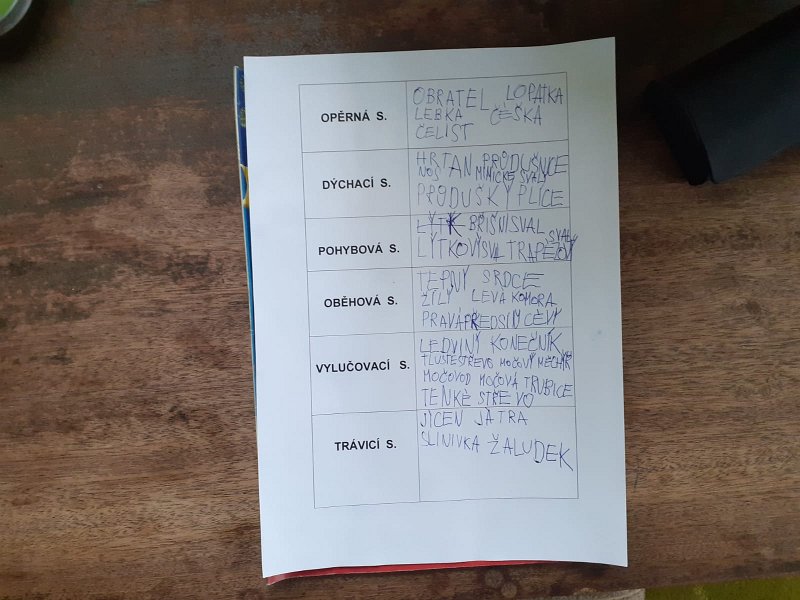 OPĚRNÁ S.
OBRATEL LOPATKA
LEBKA ČEŠKA
ČELIST
DÝCHACÍ S.
HRTAN PRŮDUŠNICE
NOS MIMICKÉ SVALY
PRŮDUŠKY PLÍCE
POHYBOVÁ S.
BŘIŠNÍ SVAL
LÝTKOVÝ SVAL TRAPÉZOVÝ SVAL
OBĚHOVÁ S.
TEPNY SRDCE
ŽÍLY LEVÁ KOMORA
PRAVÁ PŘEDSÍŇ CÉVY
VYLUČOVACÍ S.
LEDVINY KONEČNÍK
TLUSTÉ STŘEVO MOČOVÝ MĚCHÝŘ
MOČOVOD MOČOVÁ TRUBICE
TENKÉ STŘEVO
TRÁVICÍ S.
JÍCEN JÁTRA
SLINIVKA ŽALUDEK